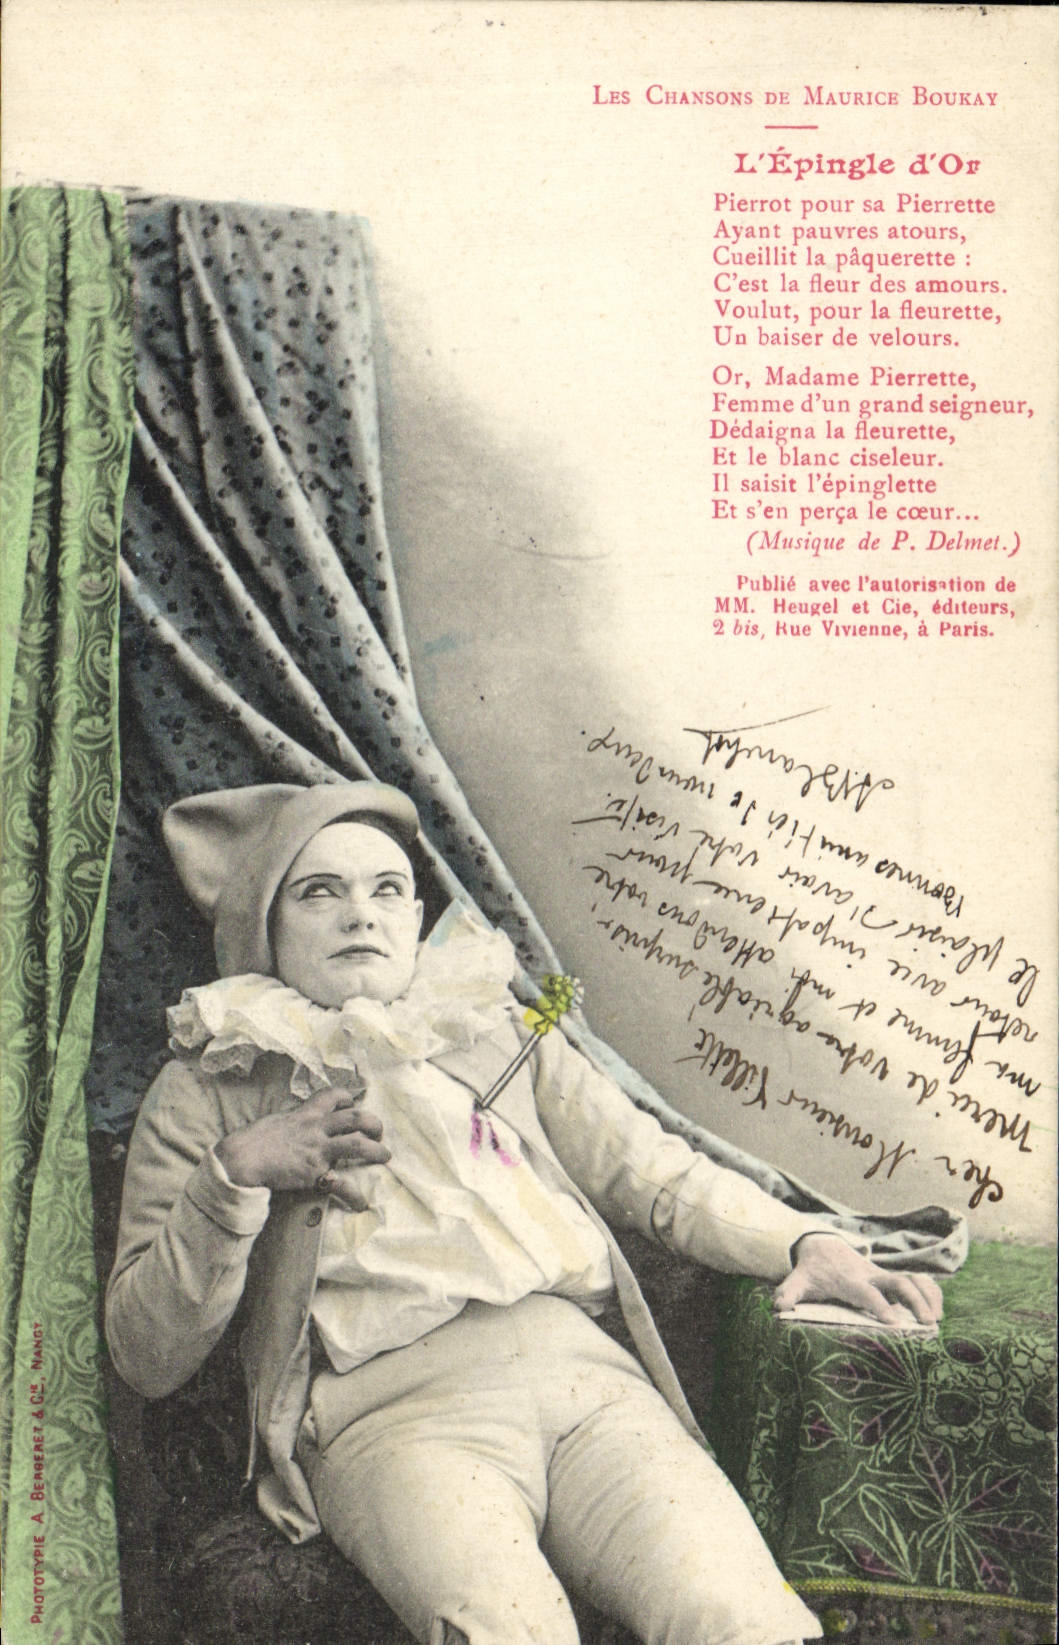 LES CHANSONS DE MAURICE BOUKAY
L'Épingle d'Or
Pierrot pour sa Pierrette
Ayant pauvres atours,
Cueillit la pâquerette :
C'est la fleur des amours.
Voulut, pour la fleurette,
Un baiser de velours.
Or, Madame Pierrette,
Femme d'un grand seigneur,
Dédaigna la fleurette,
Et le blanc ciseleur.
Il saisit l'épinglette
Et s'en perça le cœur...
(Musique de P. Delmet.)
Publié avec l'autorisation de
MM. Heugel et Cie, éditeurs,
2 bis, Rue Vivienne, à Paris.
Cher Monsieur Villette
Merci de votre agréable surprise,
ma femme et moi attendons votre
retour avec impatience pour
le plaisir d'avoir votre visite.
Bonnes amitiés de nous deux.
Blanchot
PHOTOTYPIE A. BERGERET & Cie, NANCY